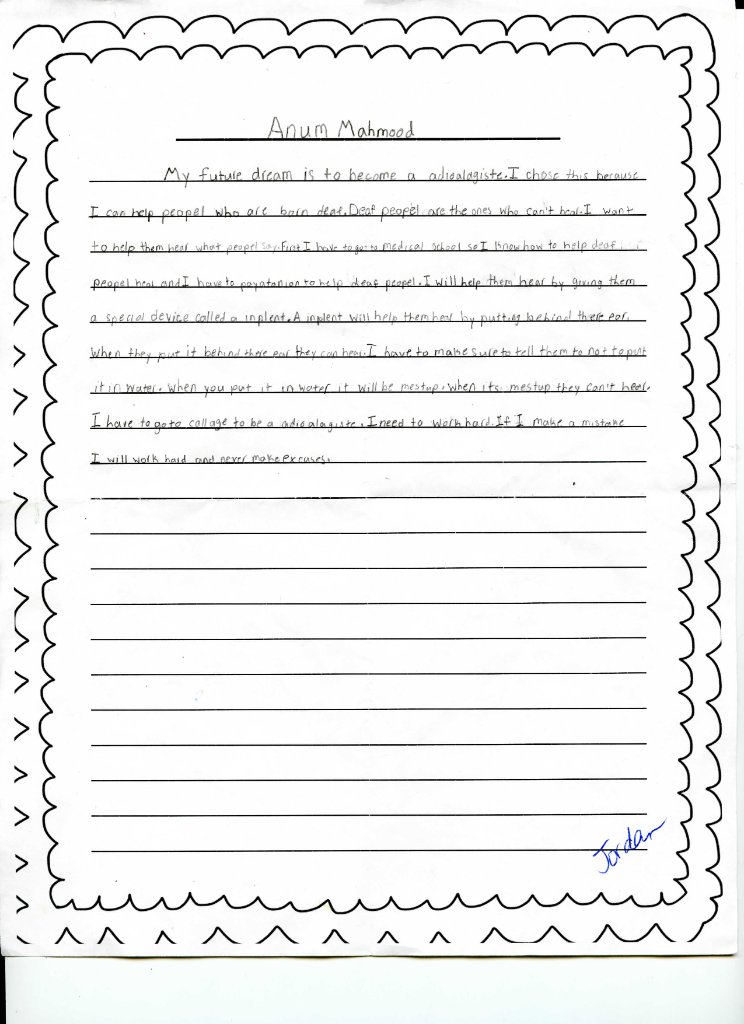 Anum Mahmood
My future dream is to become a adioalagiste. I chose this because
I can help peopel who are born deaf. Deaf peopel are the ones who can't hear. I want
to help them hear what peopel say. First I have to go to medical school so I know how to help deaf
peopel hear and I have to pay to help deaf peopel. I will help them hear by giving them
a special device called a inplent. A inplent will help them hear by putting behind there ear.
When they put it behind there ear they can hear. I have to make sure to tell them to not to put
it in water. When you put it in water it will be mestup. When its mestup they can't heer.
I have to go to collage to be a adioalagiste. I need to work hard. If I make a mistake
I will work hard and never make excuses.
Jordan